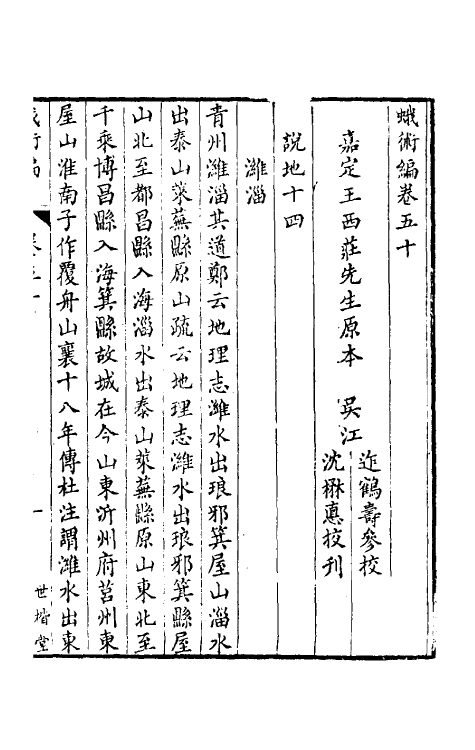 蛾術編卷五十
嘉定王西莊先生原本　吳江
迮鶴壽參校
沈楙悳挍刊
說地十四
濰淄
青州濰淄其道鄭云地理志濰水出琅邪箕屋山淄水
出泰山萊蕪縣原山疏云地理志濰水出琅邪箕縣屋
山北至都昌縣入海淄水出泰山萊蕪縣原山東北至
千乘博昌縣入海箕縣故城在今山東沂州府莒州東
屋山淮南子作覆舟山襄十八年傳杜注謂濰水出東
蛾術編
卷五十
一
世楷堂